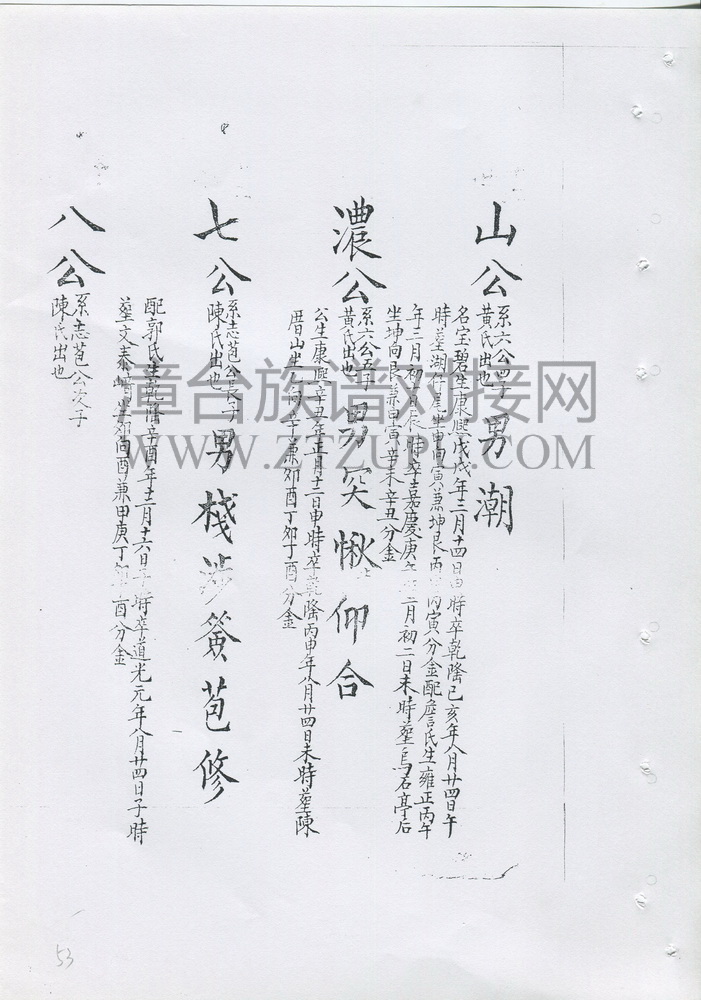 山公 系六公四子 男潮
黃氏出也
名宝碧生康熙戊戌年三月十四日申時卒乾隆己亥年八月廿四日午
時葬湖仔尾坐申向寅兼坤艮丙申丙寅分金配詹氏生雍正丙午
年三月初 日辰時卒嘉慶庚午 二月初二日未時葬烏石亭后
坐坤向艮兼申寅辛未辛丑分金
濃公 系六公五子 男突愀仰合
黃氏出也
公生康熙辛丑年正月十二日申時卒乾隆丙申年八月廿四日未時葬陳
厝山坐 向辛兼卯酉丁卯丁酉分金
七公 系志苞公長子 男棧涉簧苞修
陳氏出也
配郭氏生乾隆辛酉年十二月十六日子時卒道光元年八月廿四日子時
葬文泰 坐卯向酉兼甲庚丁卯丁酉分金
八公 系志苞公次子
陳氏出也
53
章台族谱对接网
WWW.ZTZUPU.COM